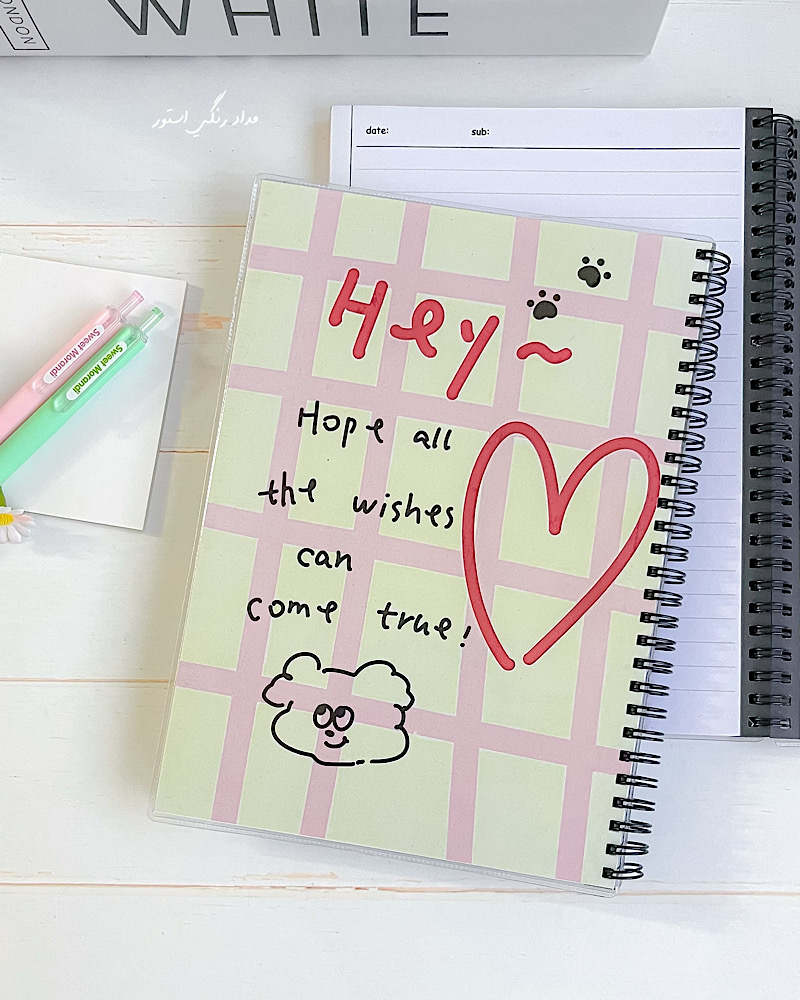 WHITE
مداد رنگی استور
date: sub:
Hey~
Hope all
the wishes
can
come true!
Sweet Morandi
Sweet Morandi